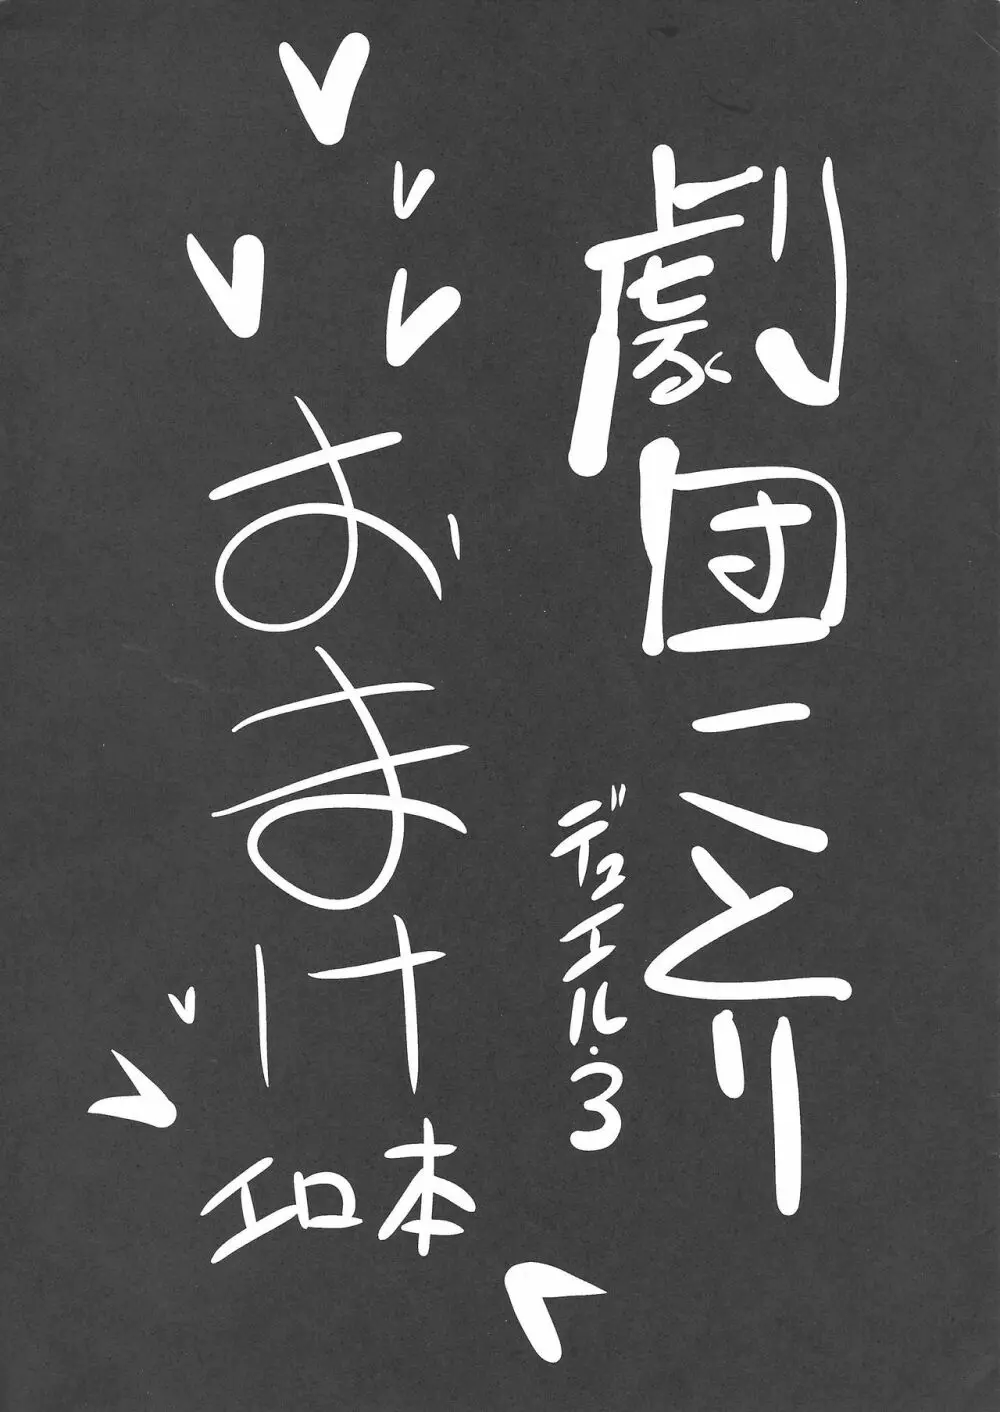 劇団ことり
デュエル・3
おまけ
エロ本